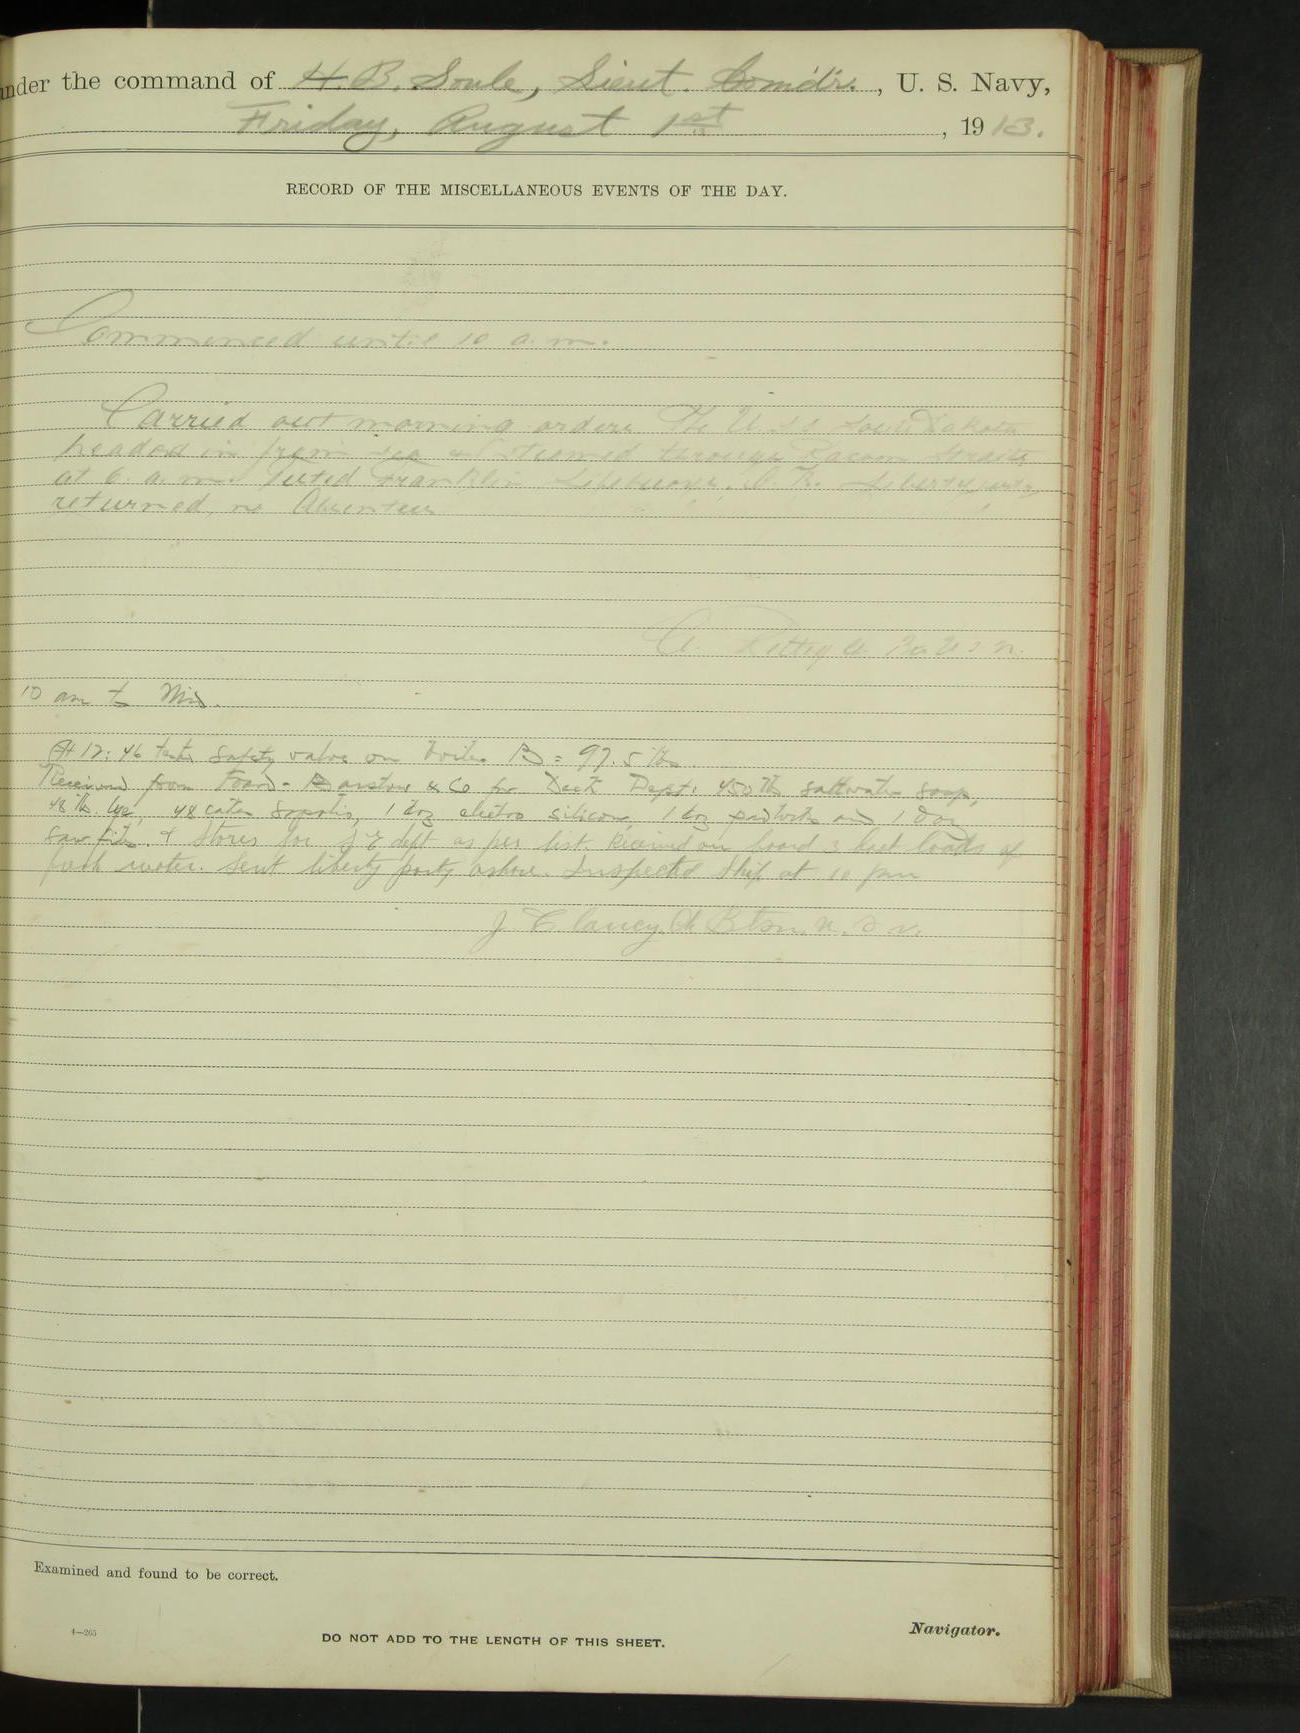 under the command of H. B. Soule, Lieut. Comdr., U. S. Navy,
Friday, August 1st, 1913.
RECORD OF THE MISCELLANEOUS EVENTS OF THE DAY.
Commenced until 10 a.m.
Carried out morning orders. The U.S.S. South Dakota
headed in from sea & steamed through Racoon Straits
at 6. a.m. Tested Franklin Lifebuoys, O.K. Liberty party
returned, no Absentees
A. Bo. U.S.N.
10 am to Mid.
At 12:46 tests safety valve on boiler B = 97.5 lbs.
Received from Foard - Barstow & Co for Deck Dept: 450 lbs saltwater soap,
48 lbs. lye, 48 cakes sapolio, 1 doz electro silicon, 1 doz padlocks and 1 doz
saw files. & stores for S E dept as per list. Received on board 3 boat loads of
fresh water. Sent liberty party ashore. Inspected ship at 10 pm
J. Clancy, Ch Btsn. U. S. N.
Examined and found to be correct.
4—265
DO NOT ADD TO THE LENGTH OF THIS SHEET.
Navigator.